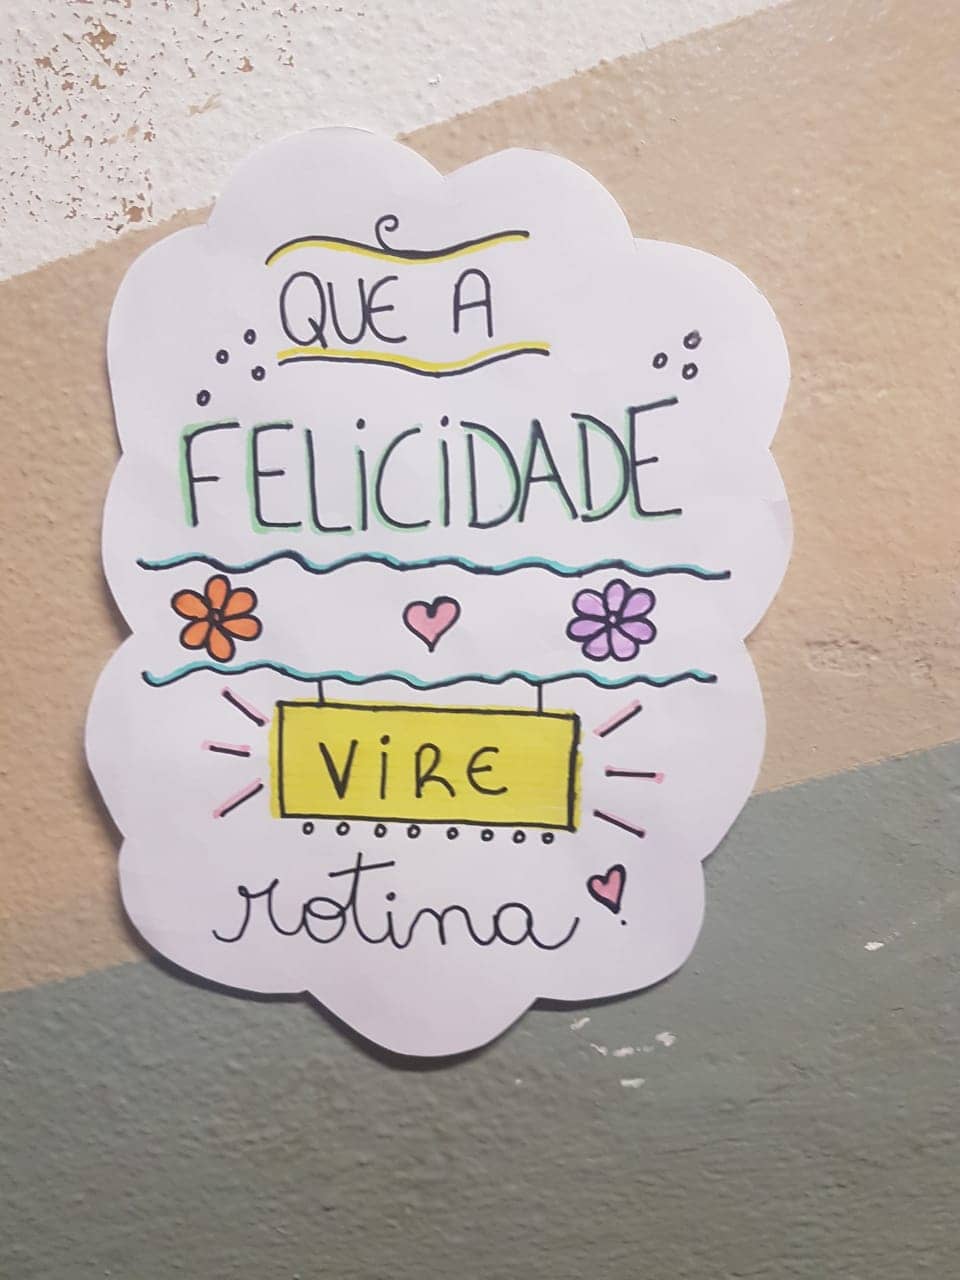 QUE A
FELiCiDADE
ViRE
rotina